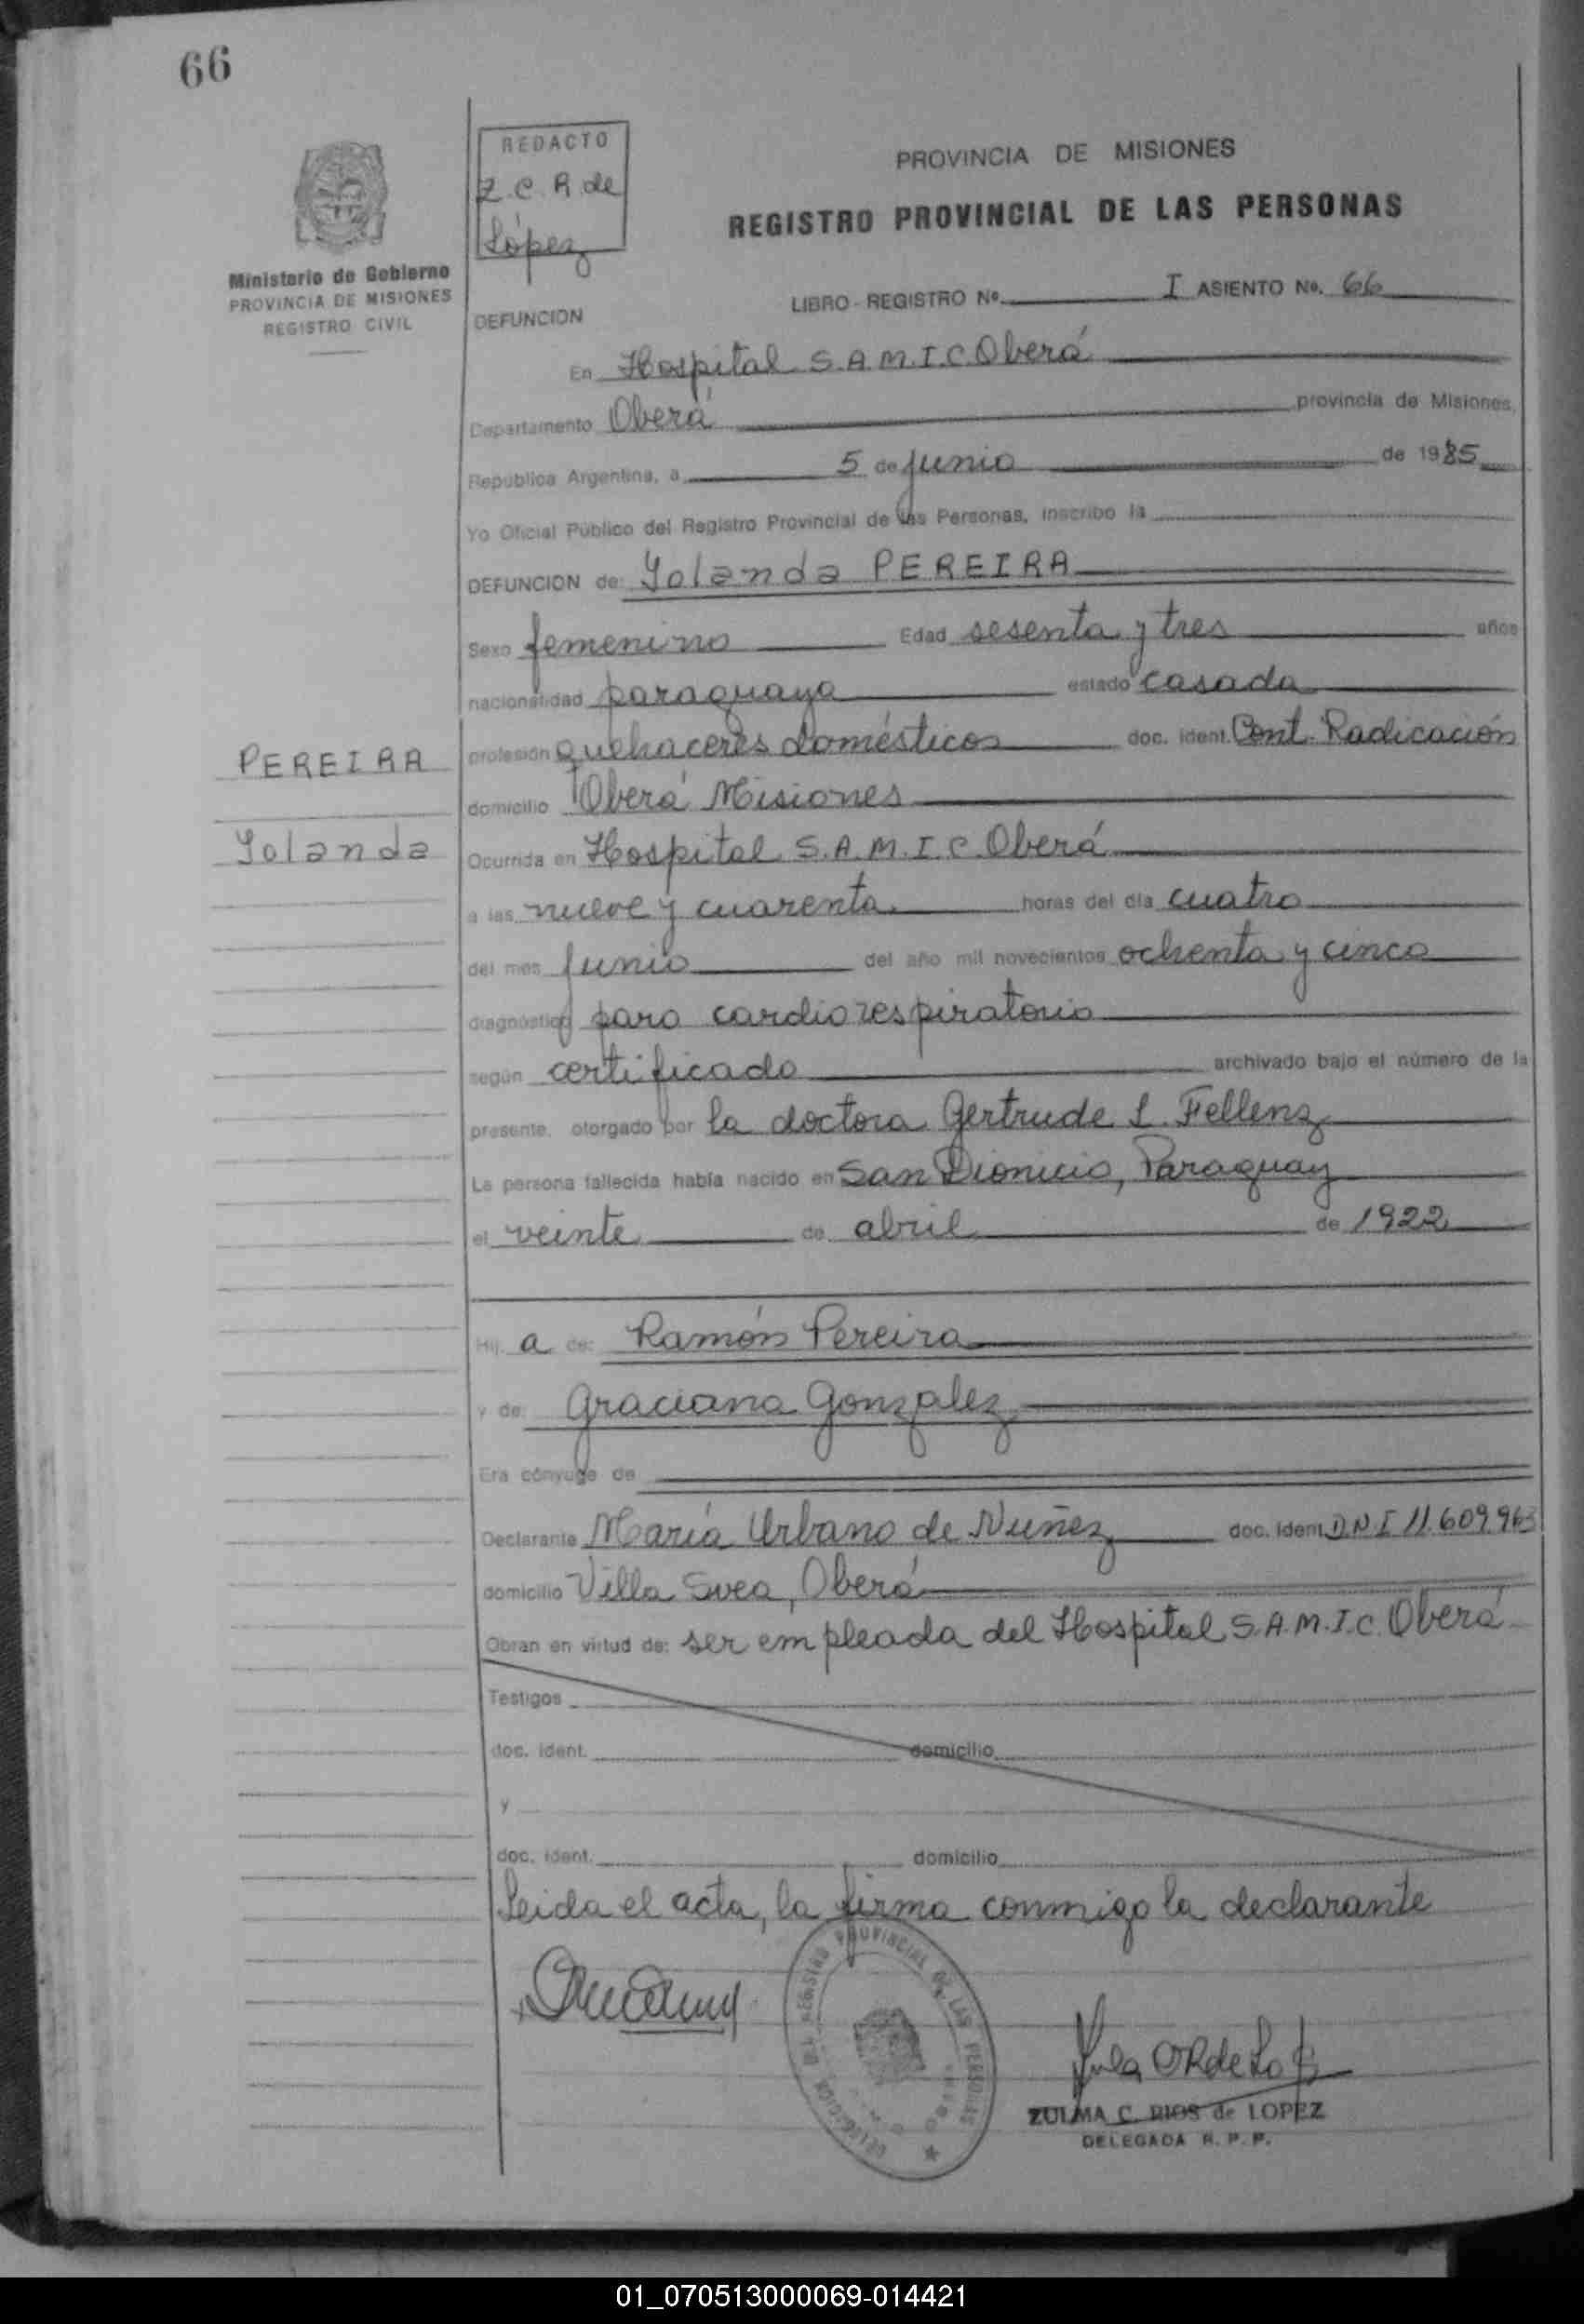 66
REDACTO
Z.C.R. de
López
Ministerio de Gobierno
PROVINCIA DE MISIONES
REGISTRO CIVIL
PROVINCIA DE MISIONES
REGISTRO PROVINCIAL DE LAS PERSONAS
LIBRO - REGISTRO Nº I ASIENTO No. 66
DEFUNCION
En Hospital S.A.M.I.C. Oberá
Departamento Oberá provincia de Misiones,
República Argentina, a 5 de junio de 1985
Yo Oficial Público del Registro Provincial de las Personas, inscribo la
DEFUNCION de: Yolanda PEREIRA
Sexo femenino Edad sesenta y tres años
nacionalidad paraguaya estado casada
PEREIRA
Yolanda
profesión quehaceres domésticos doc. ident. Cont. Radicación
domicilio Oberá Misiones
Ocurrida en Hospital S.A.M.I.C. Oberá
a las nueve y cuarenta horas del día cuatro
del mes junio del año mil novecientos ochenta y cinco
diagnóstico paro cardiorespiratorio
según certificado archivado bajo el número de la
presente, otorgado por la doctora Gertrude L. Fellenz
La persona fallecida había nacido en San Dionicio, Paraguay
el veinte de abril de 1922
Hij a de: Ramón Pereira
y de: Graciana Gonzalez
Era cónyuge de
Declarante María Urbano de Nuñez doc. ident. D.N.I 11.609.963
domicilio Villa Svea, Oberá
Obran en virtud de: ser empleada del Hospital S.A.M.I.C. Oberá
Testigos
doc. ident. domicilio
y
doc. ident. domicilio
Leida el acta, la firma conmigo la declarante
DELEGACION DEL REGISTRO PROVINCIAL DE LAS PERSONAS
ZULMA C. RIOS de LOPEZ
DELEGADA R. P. P.
01_070513000069-014421